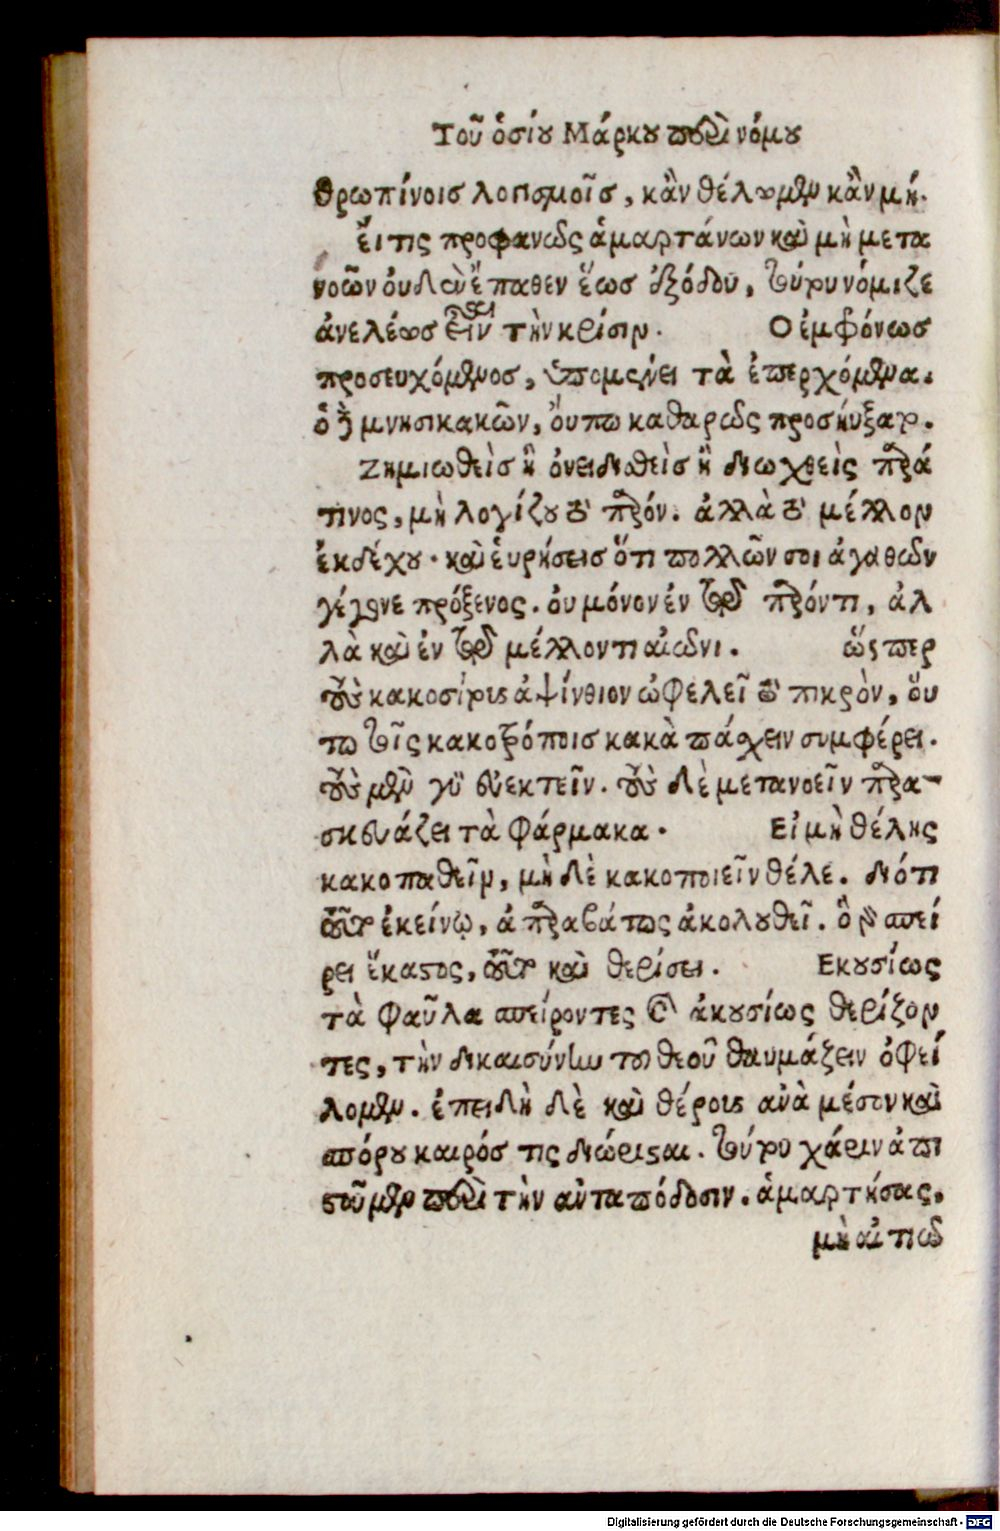 Τοῦ ὁσίου Μάρκου περὶ νόμου
θρωπίνοισ λογισμοῖσ, κἂν θέλωμεν κἂν μή.
εἴ τις προφανῶς ἁμαρτάνων καὶ μὴ μετα
νοῶν οὐδὲν ἔπαθεν ἕωσ ἐξόδου, τούτου νόμιζε
ἀνελέωσ εἶναι τὴν κρίσιν. Ὁ ἐμφρόνωσ
προσευχόμενοσ, ὑπομένει τὰ ἐπερχόμενα.
ὁ δὲ μνησικακῶν, οὔπω καθαρῶς προσηύξατο.
Ζημιωθεὶσ ἢ ὀνειδισθεὶσ ἢ διωχθεὶς παρά
τινος, μὴ λογίζου τὸ παρόν. ἀλλὰ τὸ μέλλον
ἐκδέχου. καὶ εὑρήσεισ ὅτι πολλῶν σοι ἀγαθῶν
γέγονε πρόξενος. οὐ μόνον ἐν τῷ παρόντι, ἀλ
λὰ καὶ ἐν τῷ μέλλοντι αἰῶνι. ὥσπερ
τοὺς κακοσίτους ἀψίνθιον ὠφελεῖ τὸ πικρὸν, οὕ
τω τοῖς κακοτρόποισ κακὰ πάσχειν συμφέρει.
τοὺς μὲν γὰρ εὐεκτεῖν. τοὺς δὲ μετανοεῖν παρα
σκευάζει τὰ φάρμακα. Εἰ μὴ θέλῃς
κακοπαθεῖν, μηδὲ κακοποιεῖν θέλε. διότι
τοῦτο ἐκείνῳ, ἀπαραβάτως ἀκολουθεῖ. ὃ γὰρ σπεί
ρει ἕκαστος, τοῦτο καὶ θερίσει. Ἑκουσίως
τὰ φαῦλα σπείροντες καὶ ἀκουσίως θερίζον
τες, τὴν δικαιοσύνην τοῦ θεοῦ θαυμάζειν ὀφεί
λομεν. ἐπειδὴ δὲ καὶ θέρους ἀνὰ μέσον καὶ
σπόρου καιρόσ τις διώρισται. τούτου χάριν ἀπι
στοῦμεν περὶ τὴν ἀνταπόδοσιν. ἁμαρτήσας,
μὴ αἰτιῶ
Digitalisierung gefördert durch die Deutsche Forschungsgemeinschaft - DFG